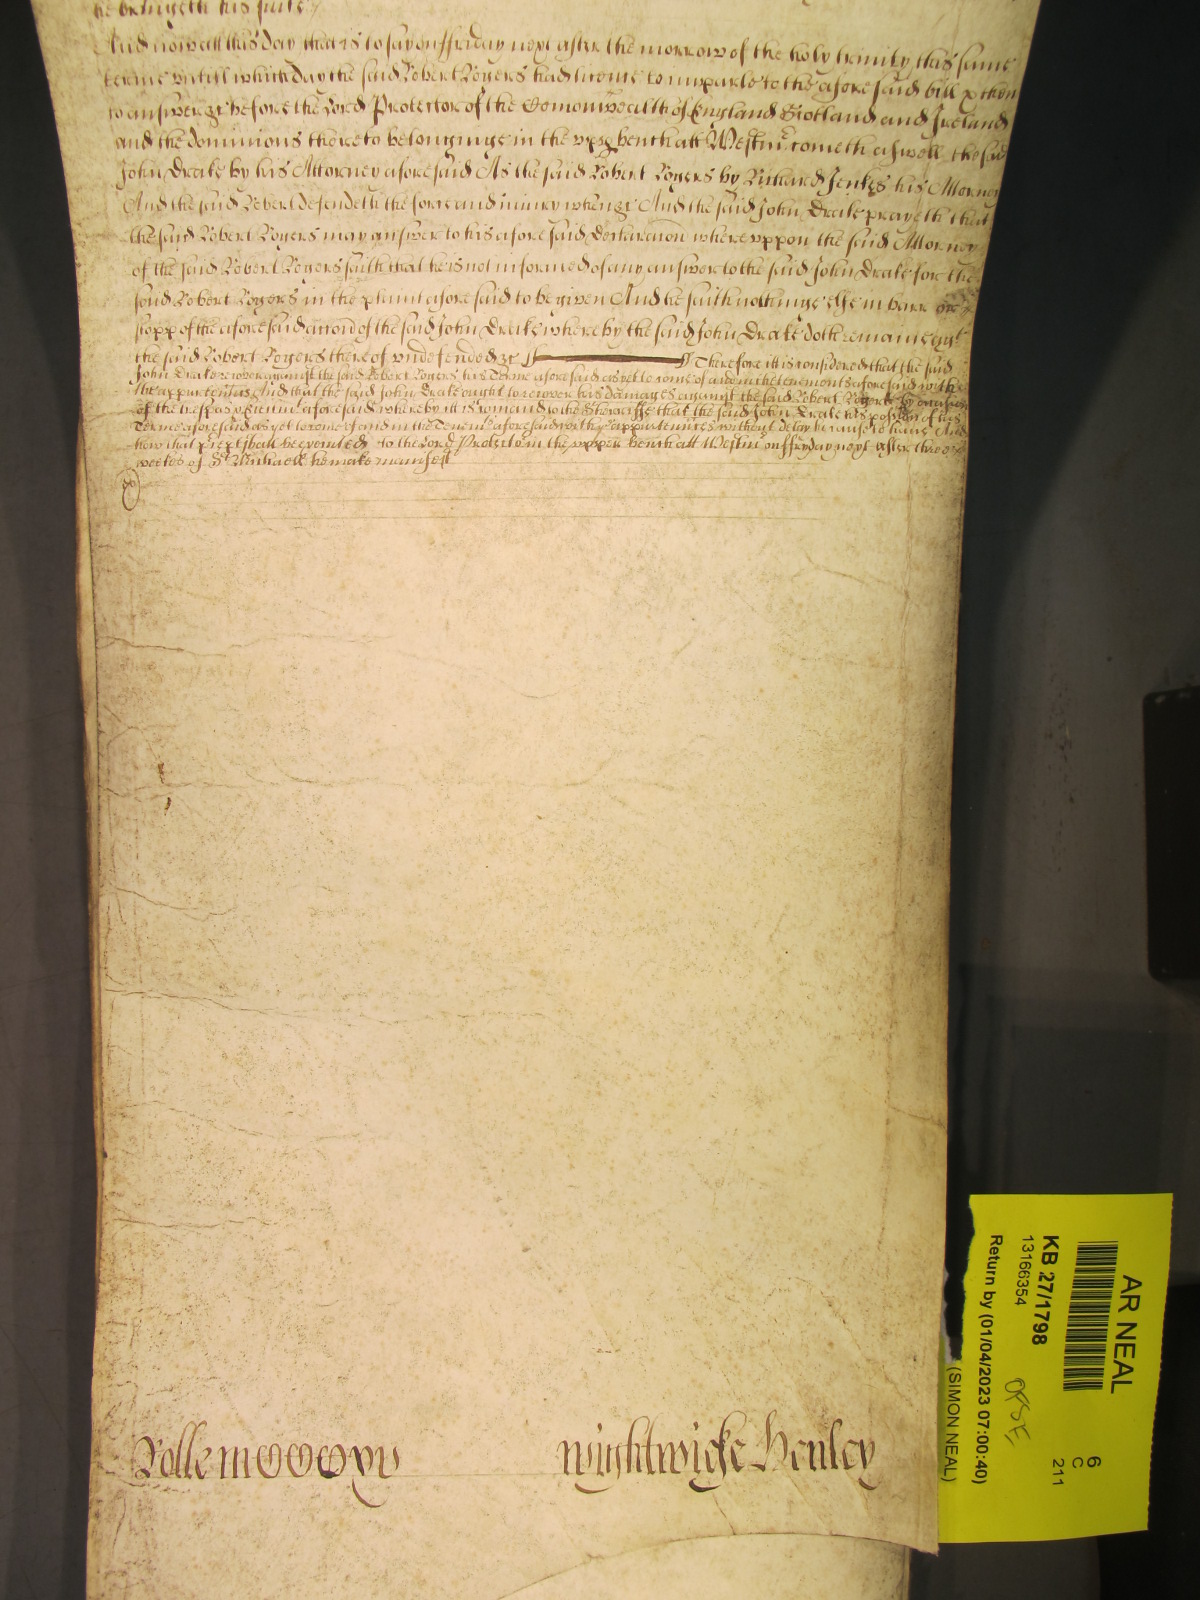 he bringeth his suite
And now att this day that is to say on ffriday next after the morrow of the holy trinity this same
terme untill which day the said Robert Rogers had licence to imparle to the aforesaid bill & then
to answer &c before the Lord Protector of the Comonwealth of England Scotland and Ireland
and the dominions thereto belonginge in the upp bench att Westm cometh aswell the said
John Drake by his Attorney aforesaid As the said Robert Rogers by Richard Jenkes his Attorney
And the said Robert defendeth the force and iniury when &c And the said John Drake prayeth that
the said Robert Rogers may answer to his aforesaid declaracon whereuppon the said Attorney
of the said Robert Rogers saith that he is not informed of any answer to the said John Drake for the
said Robert Rogers in the plaint aforesaid to be given And he saith nothinge else in barr or
stopp of the aforesaid accon of the said John Drake whereby the said John Drake doth remaine agt
the said Robert Rogers thereof undefended &c Therefore itt is considered that the said
John Drake recover against the said Robert Rogers his Terme aforesaid as yet to come of and in the tenements aforesaid with
the appurtenncs And that the said John Drake ought to recover his damages against the said Robert Rogers by occasion
of the trespas & eiectmt aforesaid whereby itt is comanded to the Sheriffe that the said John Drake his possion of his
Terme aforesaid as yet to come of and in the Tenemts aforesaid with thappurtenncs without delay he cause to have And
how that p'cept shall be executed to the Lord Protector in the upper bench att Westm on ffryday next after three
weekes of St Michaell he make manifest
Rolle mccccxv nyghtwicke Henley
AR NEAL
KB 27/1798
13166354
Return by (01/04/2023 07:00:40)
(SIMON NEAL)
6
C
211